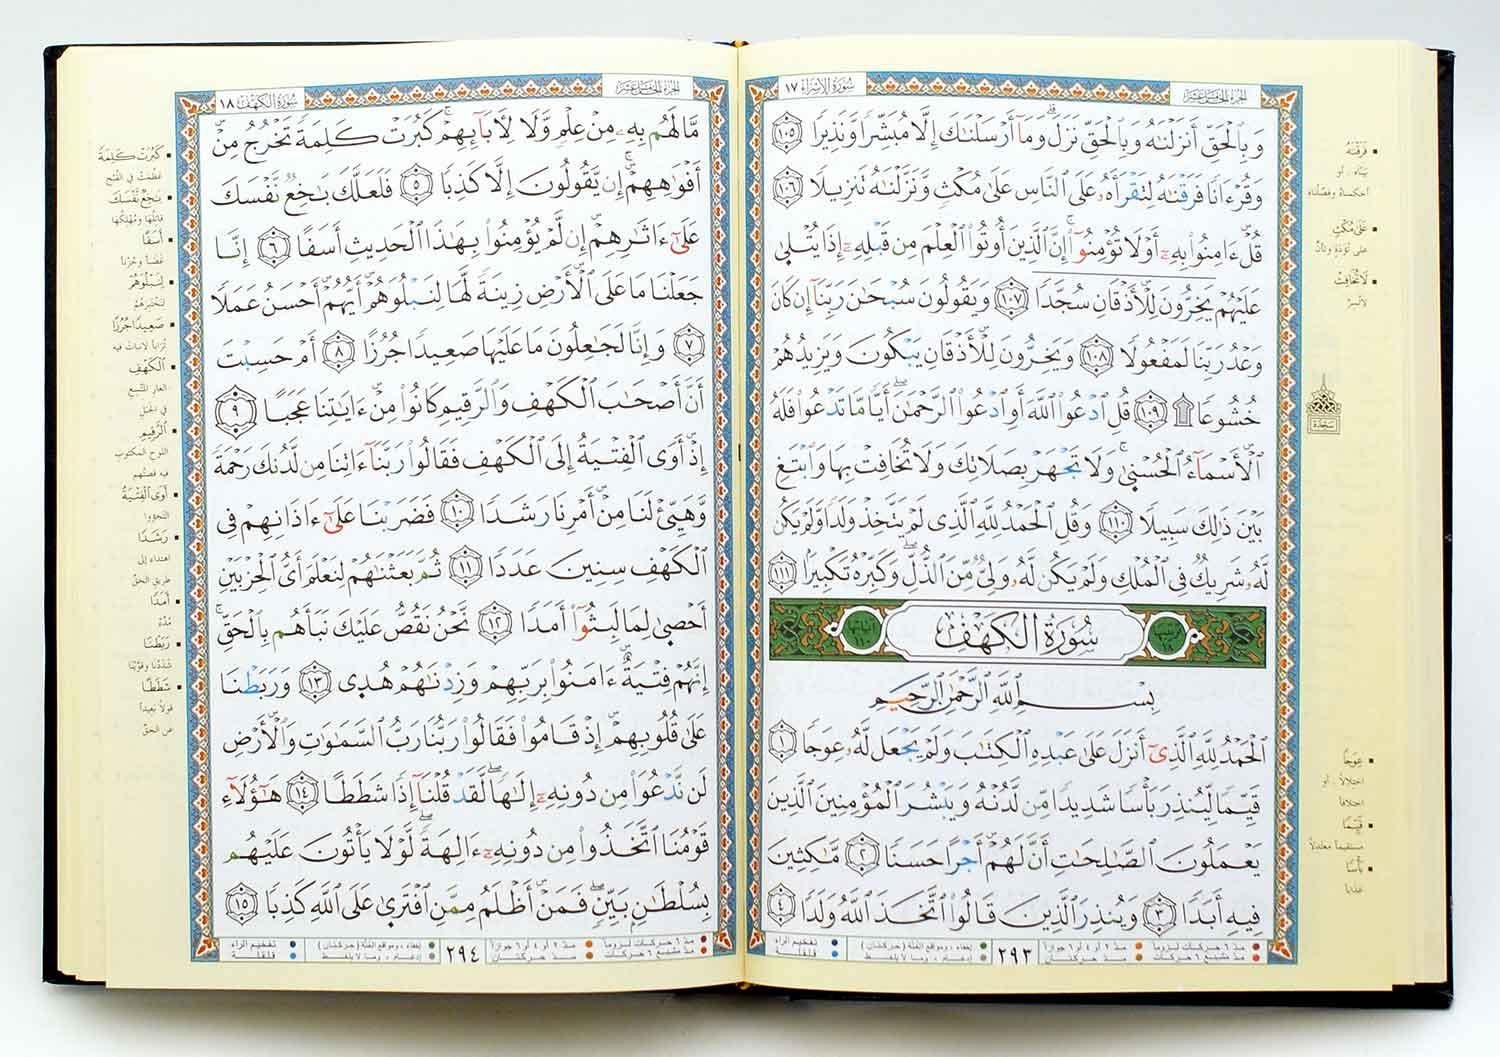 سُورَةُ الإِسْرَاء ١٧
الجزء الخامس عشر
وَبِالْحَقِّ أَنزَلْنَاهُ وَبِالْحَقِّ نَزَلَ وَمَا أَرْسَلْنَاكَ إِلَّا مُبَشِّرًا وَنَذِيرًا ١٠٥
وَقُرْءَانًا فَرَقْنَاهُ لِتَقْرَأَهُ عَلَى النَّاسِ عَلَىٰ مُكْثٍ وَنَزَّلْنَاهُ تَنزِيلًا ١٠٦
قُلْ ءَامِنُوا بِهِ أَوْ لَا تُؤْمِنُوا إِنَّ الَّذِينَ أُوتُوا الْعِلْمَ مِن قَبْلِهِ إِذَا يُتْلَىٰ
عَلَيْهِمْ يَخِرُّونَ لِلْأَذْقَانِ سُجَّدًا ١٠٧ وَيَقُولُونَ سُبْحَانَ رَبِّنَا إِن كَانَ
وَعْدُ رَبِّنَا لَمَفْعُولًا ١٠٨ وَيَخِرُّونَ لِلْأَذْقَانِ يَبْكُونَ وَيَزِيدُهُمْ
خُشُوعًا ۩ ١٠٩ قُلِ ادْعُوا اللَّهَ أَوِ ادْعُوا الرَّحْمَٰنَ أَيًّا مَّا تَدْعُوا فَلَهُ
الْأَسْمَاءُ الْحُسْنَىٰ وَلَا تَجْهَرْ بِصَلَاتِكَ وَلَا تُخَافِتْ بِهَا وَابْتَغِ
بَيْنَ ذَٰلِكَ سَبِيلًا ١١٠ وَقُلِ الْحَمْدُ لِلَّهِ الَّذِي لَمْ يَتَّخِذْ وَلَدًا وَلَمْ يَكُن
لَّهُ شَرِيكٌ فِي الْمُلْكِ وَلَمْ يَكُن لَّهُ وَلِيٌّ مِّنَ الذُّلِّ وَكَبِّرْهُ تَكْبِيرًا ١١١
سُورَةُ الْكَهْفِ
بِسْمِ اللَّهِ الرَّحْمَٰنِ الرَّحِيمِ
الْحَمْدُ لِلَّهِ الَّذِي أَنزَلَ عَلَىٰ عَبْدِهِ الْكِتَابَ وَلَمْ يَجْعَل لَّهُ عِوَجًا ١
قَيِّمًا لِّيُنذِرَ بَأْسًا شَدِيدًا مِّن لَّدُنْهُ وَيُبَشِّرَ الْمُؤْمِنِينَ الَّذِينَ
يَعْمَلُونَ الصَّالِحَاتِ أَنَّ لَهُمْ أَجْرًا حَسَنًا ٢ مَّاكِثِينَ
فِيهِ أَبَدًا ٣ وَيُنذِرَ الَّذِينَ قَالُوا اتَّخَذَ اللَّهُ وَلَدًا ٤
فَرَقْنَاهُ
بيّناه ، أو
أحكمناه وفصّلناه
عَلَىٰ مُكْثٍ
على تُؤَدَةٍ وتأنٍّ
لَا تُخَافِتْ
لا تُسِرّ
سجدة
عِوَجًا
اختلالاً ، أو
اختلافاً
قَيِّمًا
مستقيماً معتدلاً
بَأْسًا
عذاباً
مدّ ٦ حركات لزوماً
مدّ ٢ أو ٤ أو ٦ جوازاً
مدّ مشبع ٦ حركات
مدّ حركتان
٢٩٣
إخفاء ، ومواقع الغُنَّة (حركتان)
إدغام ، وما لا يُلفظ
تفخيم الراء
قلقلة
سُورَةُ الكَهْف ١٨
الجزء الخامس عشر
مَّا لَهُم بِهِ مِنْ عِلْمٍ وَلَا لِآبَائِهِمْ كَبُرَتْ كَلِمَةً تَخْرُجُ مِنْ
أَفْوَاهِهِمْ إِن يَقُولُونَ إِلَّا كَذِبًا ٥ فَلَعَلَّكَ بَاخِعٌ نَّفْسَكَ
عَلَىٰ ءَاثَارِهِمْ إِن لَّمْ يُؤْمِنُوا بِهَٰذَا الْحَدِيثِ أَسَفًا ٦ إِنَّا
جَعَلْنَا مَا عَلَى الْأَرْضِ زِينَةً لَّهَا لِنَبْلُوَهُمْ أَيُّهُمْ أَحْسَنُ عَمَلًا
٧ وَإِنَّا لَجَاعِلُونَ مَا عَلَيْهَا صَعِيدًا جُرُزًا ٨ أَمْ حَسِبْتَ
أَنَّ أَصْحَابَ الْكَهْفِ وَالرَّقِيمِ كَانُوا مِنْ ءَايَاتِنَا عَجَبًا ٩
إِذْ أَوَى الْفِتْيَةُ إِلَى الْكَهْفِ فَقَالُوا رَبَّنَا ءَاتِنَا مِن لَّدُنكَ رَحْمَةً
وَهَيِّئْ لَنَا مِنْ أَمْرِنَا رَشَدًا ١٠ فَضَرَبْنَا عَلَىٰ ءَاذَانِهِمْ فِي
الْكَهْفِ سِنِينَ عَدَدًا ١١ ثُمَّ بَعَثْنَاهُمْ لِنَعْلَمَ أَيُّ الْحِزْبَيْنِ
أَحْصَىٰ لِمَا لَبِثُوا أَمَدًا ١٢ نَّحْنُ نَقُصُّ عَلَيْكَ نَبَأَهُم بِالْحَقِّ
إِنَّهُمْ فِتْيَةٌ ءَامَنُوا بِرَبِّهِمْ وَزِدْنَاهُمْ هُدًى ١٣ وَرَبَطْنَا
عَلَىٰ قُلُوبِهِمْ إِذْ قَامُوا فَقَالُوا رَبُّنَا رَبُّ السَّمَاوَاتِ وَالْأَرْضِ
لَن نَّدْعُوَا مِن دُونِهِ إِلَٰهًا لَّقَدْ قُلْنَا إِذًا شَطَطًا ١٤ هَٰؤُلَاءِ
قَوْمُنَا اتَّخَذُوا مِن دُونِهِ ءَالِهَةً لَّوْلَا يَأْتُونَ عَلَيْهِم
بِسُلْطَانٍ بَيِّنٍ فَمَنْ أَظْلَمُ مِمَّنِ افْتَرَىٰ عَلَى اللَّهِ كَذِبًا ١٥
كَبُرَتْ كَلِمَةً
عظُمت في القُبح
بَاخِعٌ نَّفْسَكَ
قاتلها ومُهلكها
أَسَفًا
غضباً وحُزناً
لِنَبْلُوَهُمْ
لنختبرهم
صَعِيدًا جُرُزًا
تراباً لا نبات فيه
الْكَهْفِ
الغار المتّسع
في الجبل
الرَّقِيمِ
اللوح المكتوب
فيه قصّتهم
أَوَى الْفِتْيَةُ
التجؤوا
رَشَدًا
اهتداءً إلى
طريق الحقّ
أَمَدًا
مُدّة
رَبَطْنَا
شددنا وقوّينا
شَطَطًا
قولاً بعيداً
عن الحقّ
مدّ ٦ حركات لزوماً
مدّ ٢ أو ٤ أو ٦ جوازاً
مدّ مشبع ٦ حركات
مدّ حركتان
٢٩٤
إخفاء ، ومواقع الغُنَّة (حركتان)
إدغام ، وما لا يُلفظ
تفخيم الراء
قلقلة